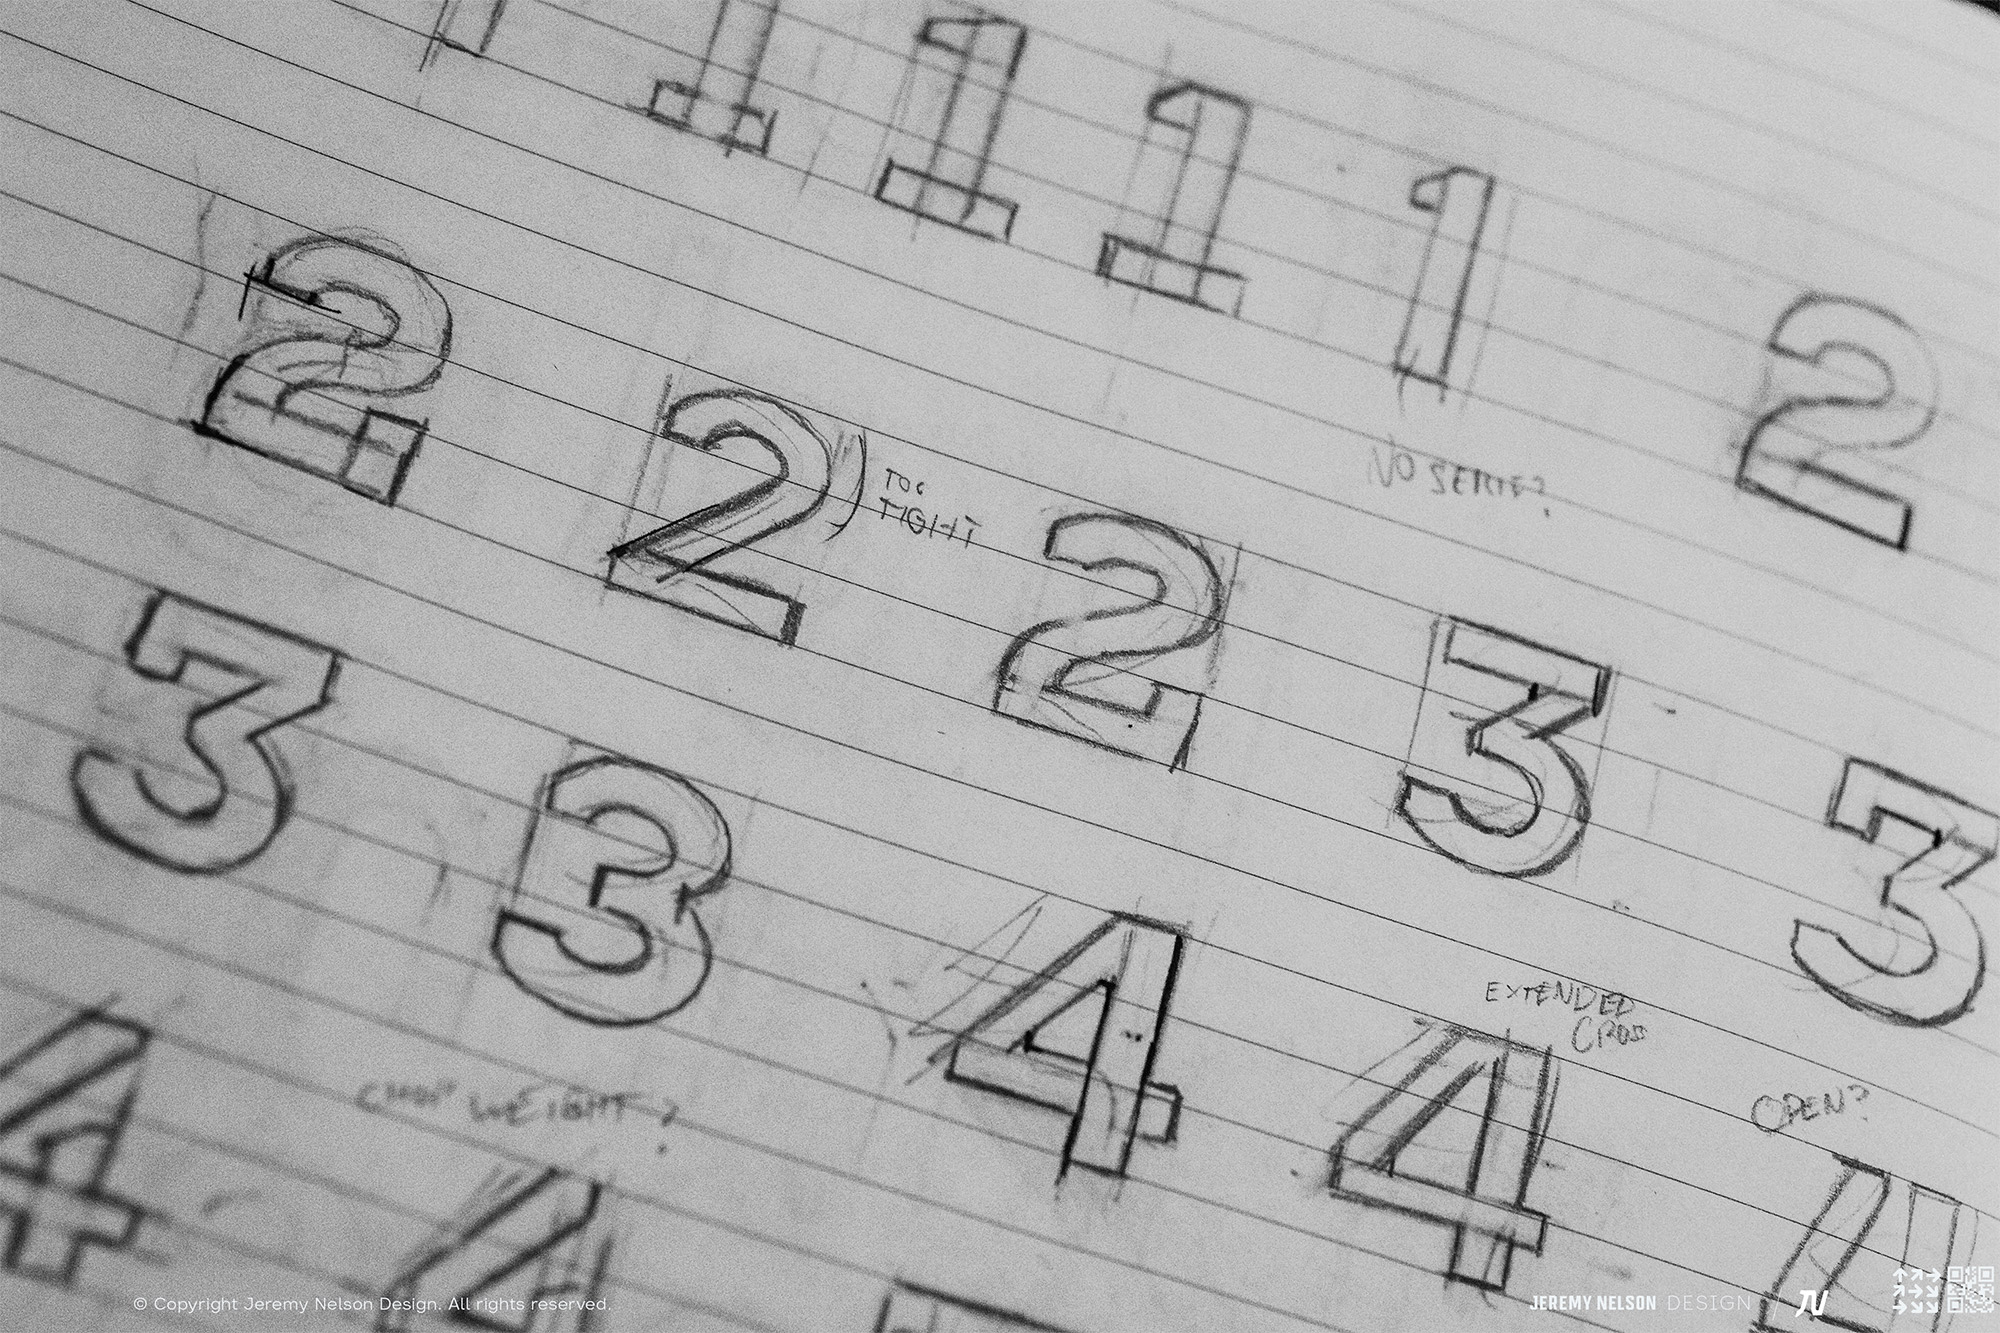 1 1 1 1
2
NO SERIF?
2 2 2 3 3
TOO
TIGHT
3 3 4 4
EXTENDED
CROSS
OPEN?
WEIGHT?
4 4 4
© Copyright Jeremy Nelson Design. All rights reserved.
JEREMY NELSON DESIGN